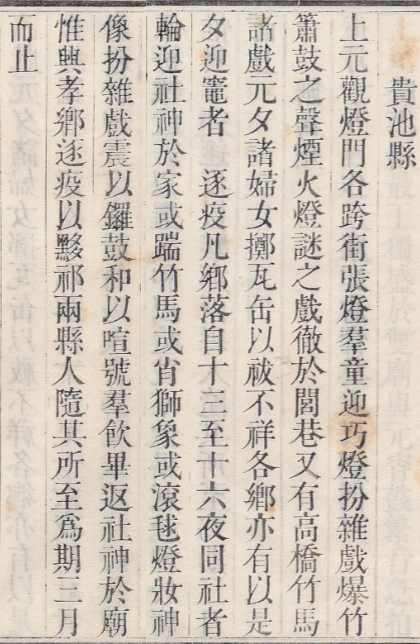 貴池縣
上元觀燈門各跨街張燈羣童迎巧燈扮雜戲爆竹
簫鼓之聲煙火燈謎之戲徹於閭巷又有高橋竹馬
諸戲元夕諸婦女擲瓦缶以祓不祥各鄉亦有以是
夕迎竈者　逐疫凡鄉落自十三至十六夜同社者
輪迎社神於家或踹竹馬或肖獅象或滾毬燈妝神
像扮雜戲震以鑼鼓和以喧號羣飲畢返社神於廟
惟興孝鄉逐疫以黟祁兩縣人隨其所至爲期三月
而止